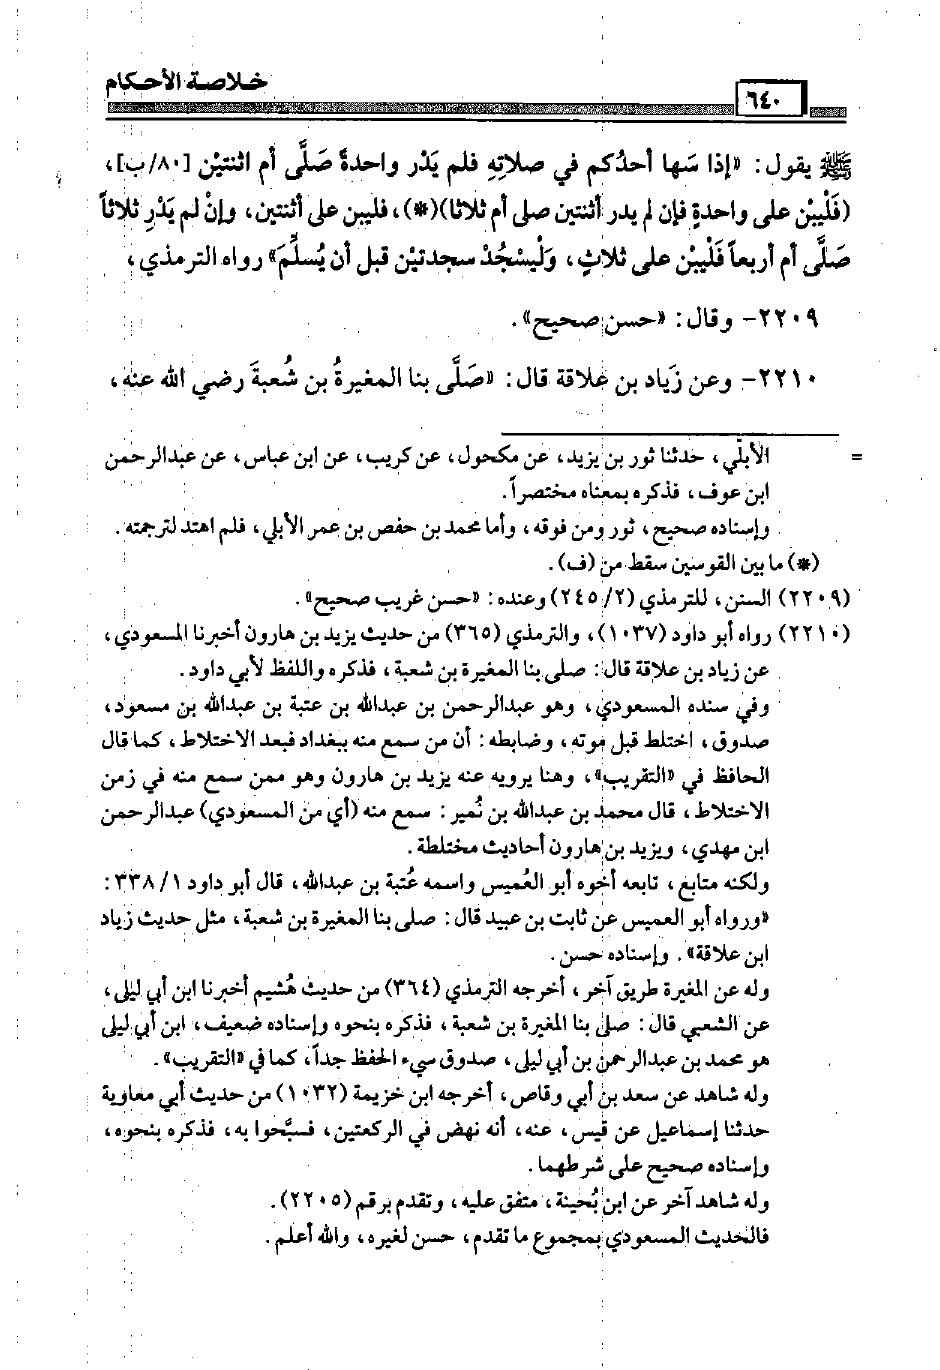 خلاصة الأحكام
٦٤٠
ﷺ يقول: «إذا سَها أحدُكم في صلاتِهِ فلم يَدْر واحدةً صَلَّى أم اثنتيْن [٨٠/ب]،
(فَلْيبْن على واحدةٍ فإن لم يدر أثنتين صلى أم ثلاثا)(*)، فليبن على أثنتين، وإنْ لم يَدْرِ ثلاثاً
صَلَّى أم أربعاً فَلْيبْن على ثلاثٍ، وَليسْجُدْ سجدتيْن قبل أن يُسلِّمَ» رواه الترمذي،
٢٢٠٩- وقال: «حسن صحيح».
٢٢١٠- وعن زَياد بن علاقة قال: «صَلَّى بنا المغيرةُ بن شُعبةَ رضي الله عنه،
= الأبلّي، حدثنا ثور بن يزيد، عن مكحول، عن كريب، عن ابن عباس، عن عبدالرحمن
ابن عوف، فذكره بمعناه مختصراً.
وإسناده صحيح، ثور ومن فوقه، وأما محمد بن حفص بن عمر الأبلي، فلم اهتد لترجمته.
(*) ما بين القوسين سقط من (ف).
(٢٢٠٩) السنن، للترمذي (٢٤٥/٢) وعنده: «حسن غريب صحيح».
(٢٢١٠) رواه أبو داود (١٠٣٧)، والترمذي (٣٦٥) من حديث يزيد بن هارون أخبرنا المسعودي،
عن زياد بن علاقة قال: صلى بنا المغيرة بن شعبة، فذكره واللفظ لأبي داود.
وفي سنده المسعودي، وهو عبدالرحمن بن عبدالله بن عتبة بن عبدالله بن مسعود،
صدوق، اختلط قبل موته، وضابطه: أن من سمع منه ببغداد فبعد الاختلاط، كما قال
الحافظ في «التقريب»، وهنا يرويه عنه يزيد بن هارون وهو ممن سمع منه في زمن
الاختلاط، قال محمد بن عبدالله بن نُمير: سمع منه (أي من المسعودي) عبدالرحمن
ابن مهدي، ويزيد بن هارون أحاديث مختلطة.
ولكنه متابع، تابعه أخوه أبو العُميس واسمه عُتبة بن عبدالله، قال أبو داود ٣٣٨/١:
«ورواه أبو العميس عن ثابت بن عبيد قال: صلى بنا المغيرة بن شعبة، مثل حديث زياد
ابن علاقة». وإسناده حسن.
وله عن المغيرة طريق آخر، أخرجه الترمذي (٣٦٤) من حديث هُشيم أخبرنا ابن أبي ليلى،
عن الشعبي قال: صلى بنا المغيرة بن شعبة، فذكره بنحوه وإسناده ضعيف، ابن أبي ليلى
هو محمد بن عبدالرحمن بن أبي ليلى، صدوق سيء الحفظ جداً، كما في «التقريب».
وله شاهد عن سعد بن أبي وقاص، أخرجه ابن خزيمة (١٠٣٢) من حديث أبي معاوية
حدثنا إسماعيل عن قيس، عنه، أنه نهض في الركعتين، فسبَّحوا به، فذكره بنحوه،
وإسناده صحيح على شرطهما.
وله شاهد آخر عن ابن بُحينة، متفق عليه، وتقدم برقم (٢٢٠٥).
فالحديث المسعودي بمجموع ما تقدم، حسن لغيره، والله أعلم.